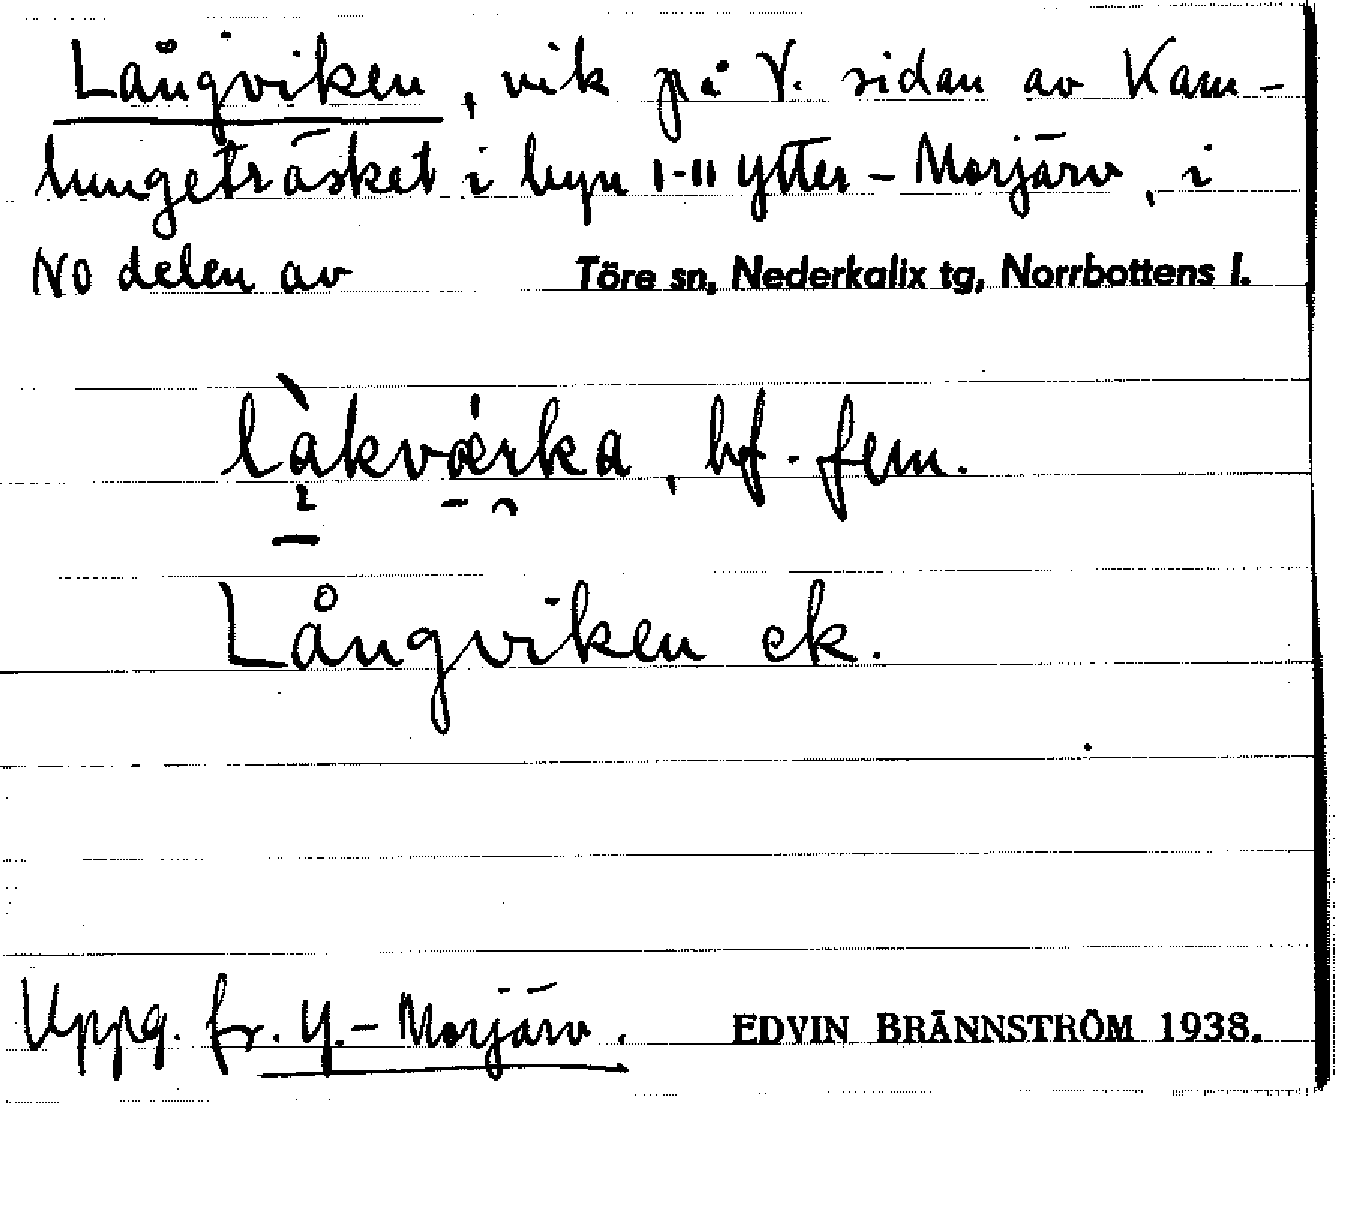 Långviken, vik på V. sidan av Kam-
lungeträsket i byn 1-11 Ytter-Morjärv, i
NO delen av Töre sn, Nederkalix tg, Norrbottens l.
bf. fem.
Långviken ek.
Uppg. fr. Y.-Morjärv. EDVIN BRÄNNSTRÖM 1938.